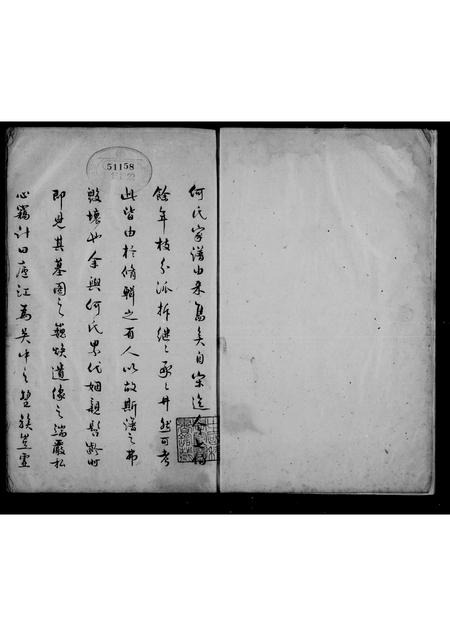 何氏家譜由来舊矣自宋迄今七百
餘年枝分派析繼繼承承井然可考
此皆由於脩輯之有人以故斯譜之弗
毀壞也余與何氏累代姻親髫齡時
即見其墓圖之巍煥遺像之端嚴私
心竊計曰廬江為吳中之望族豈虛
51158